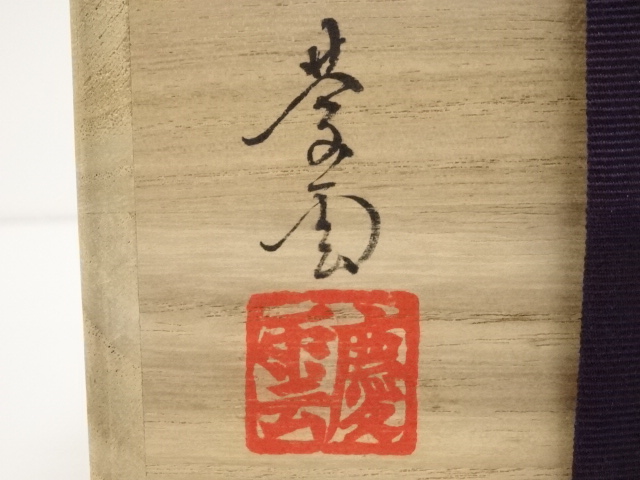 慶雲
慶雲